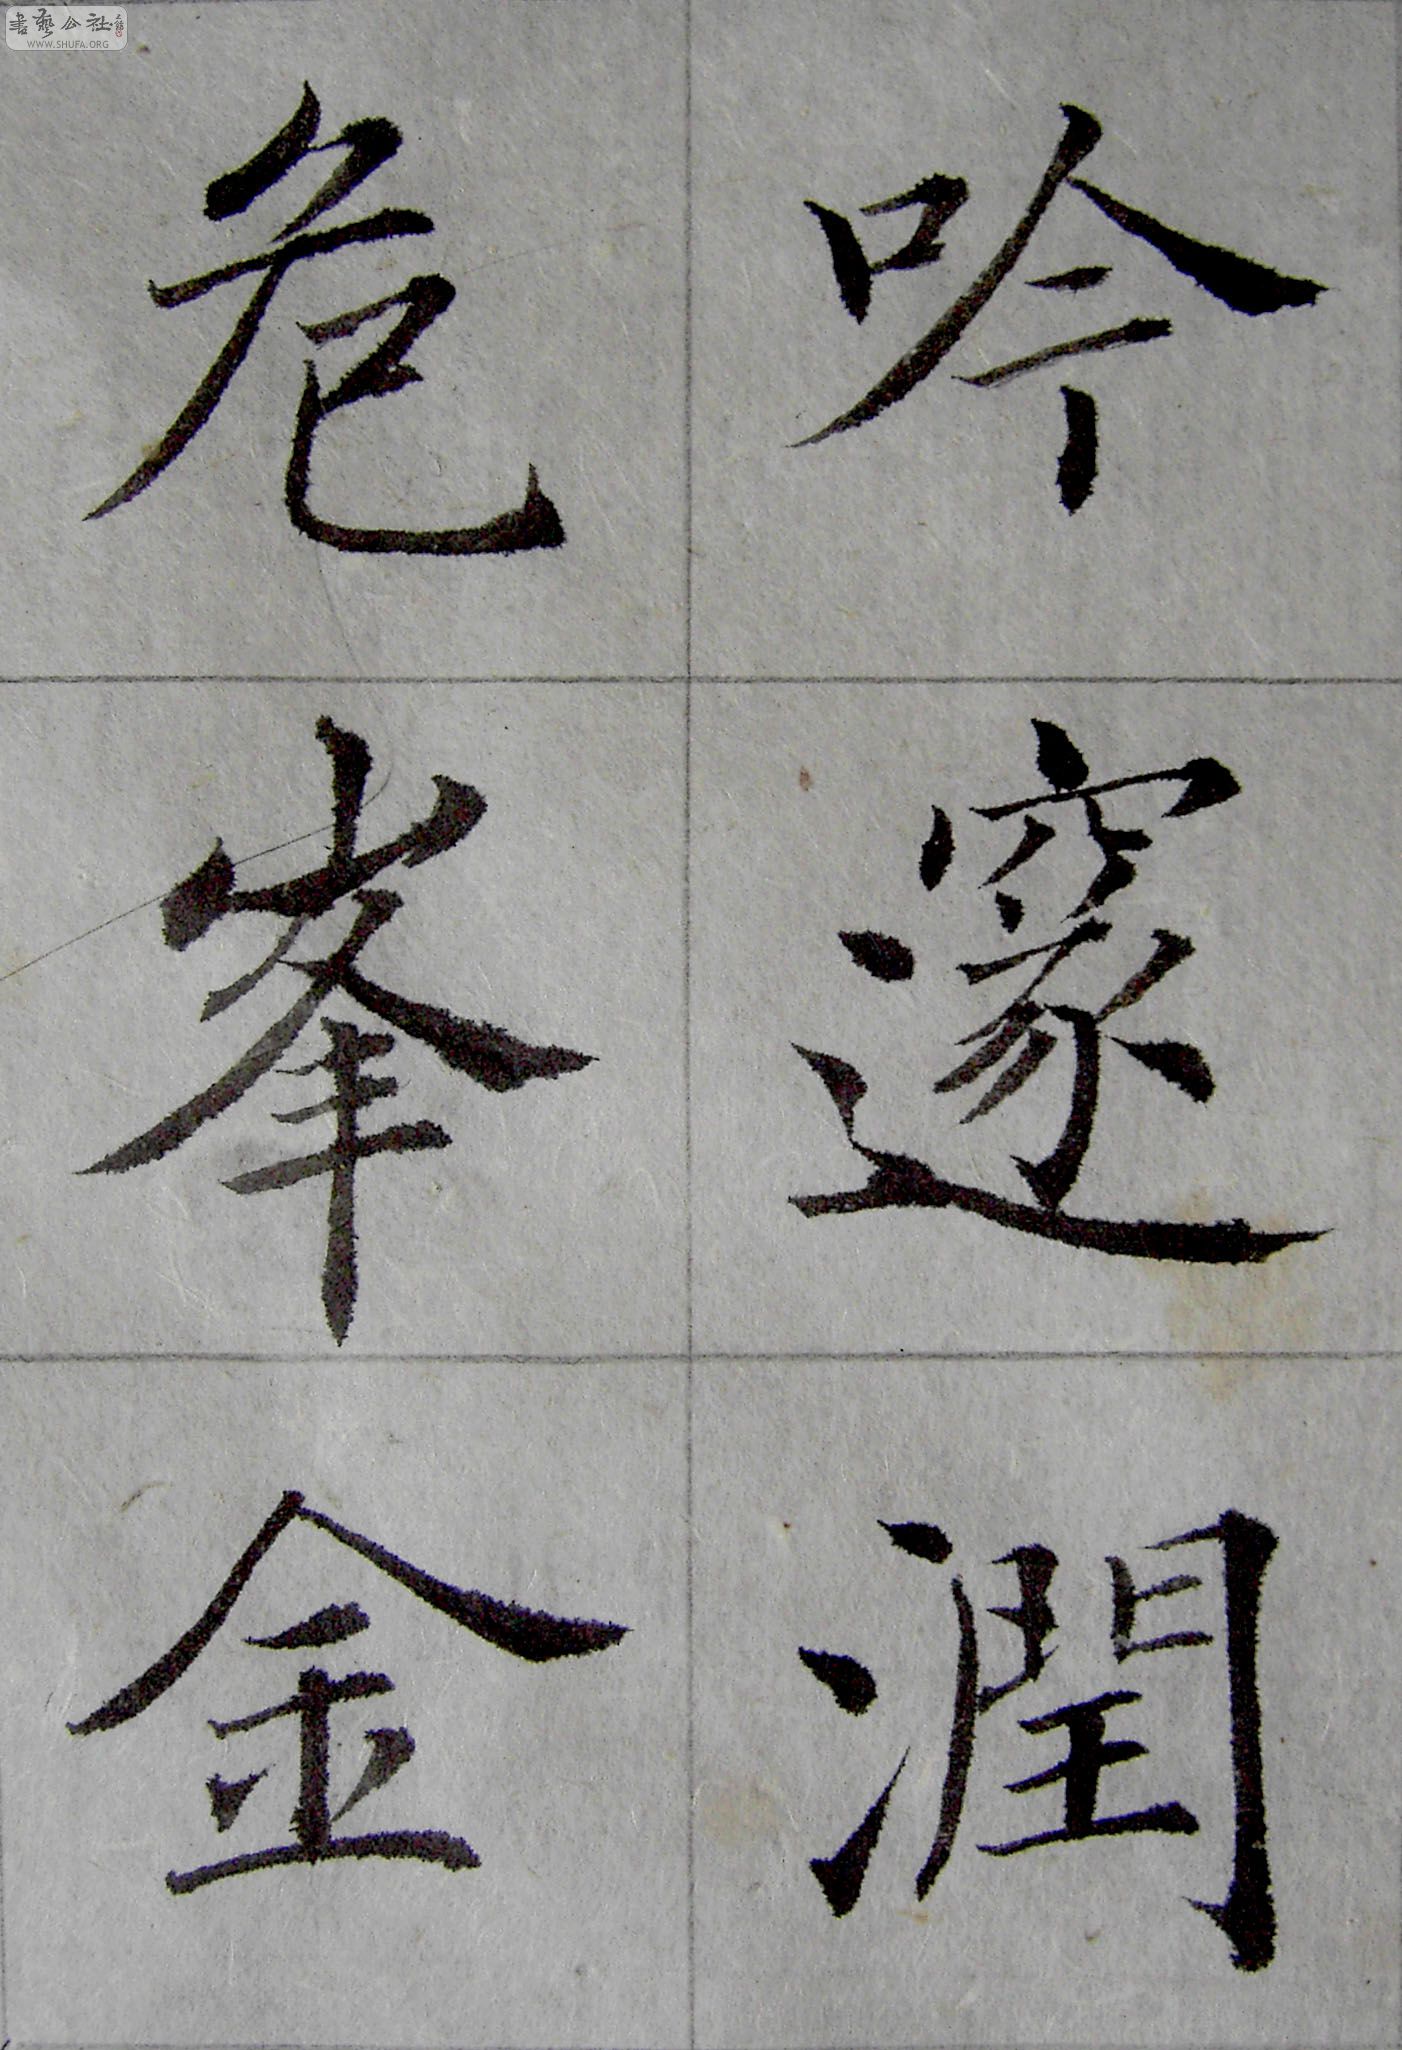 吟邃潤
危峯金
書藝公社
WWW.SHUFA.ORG